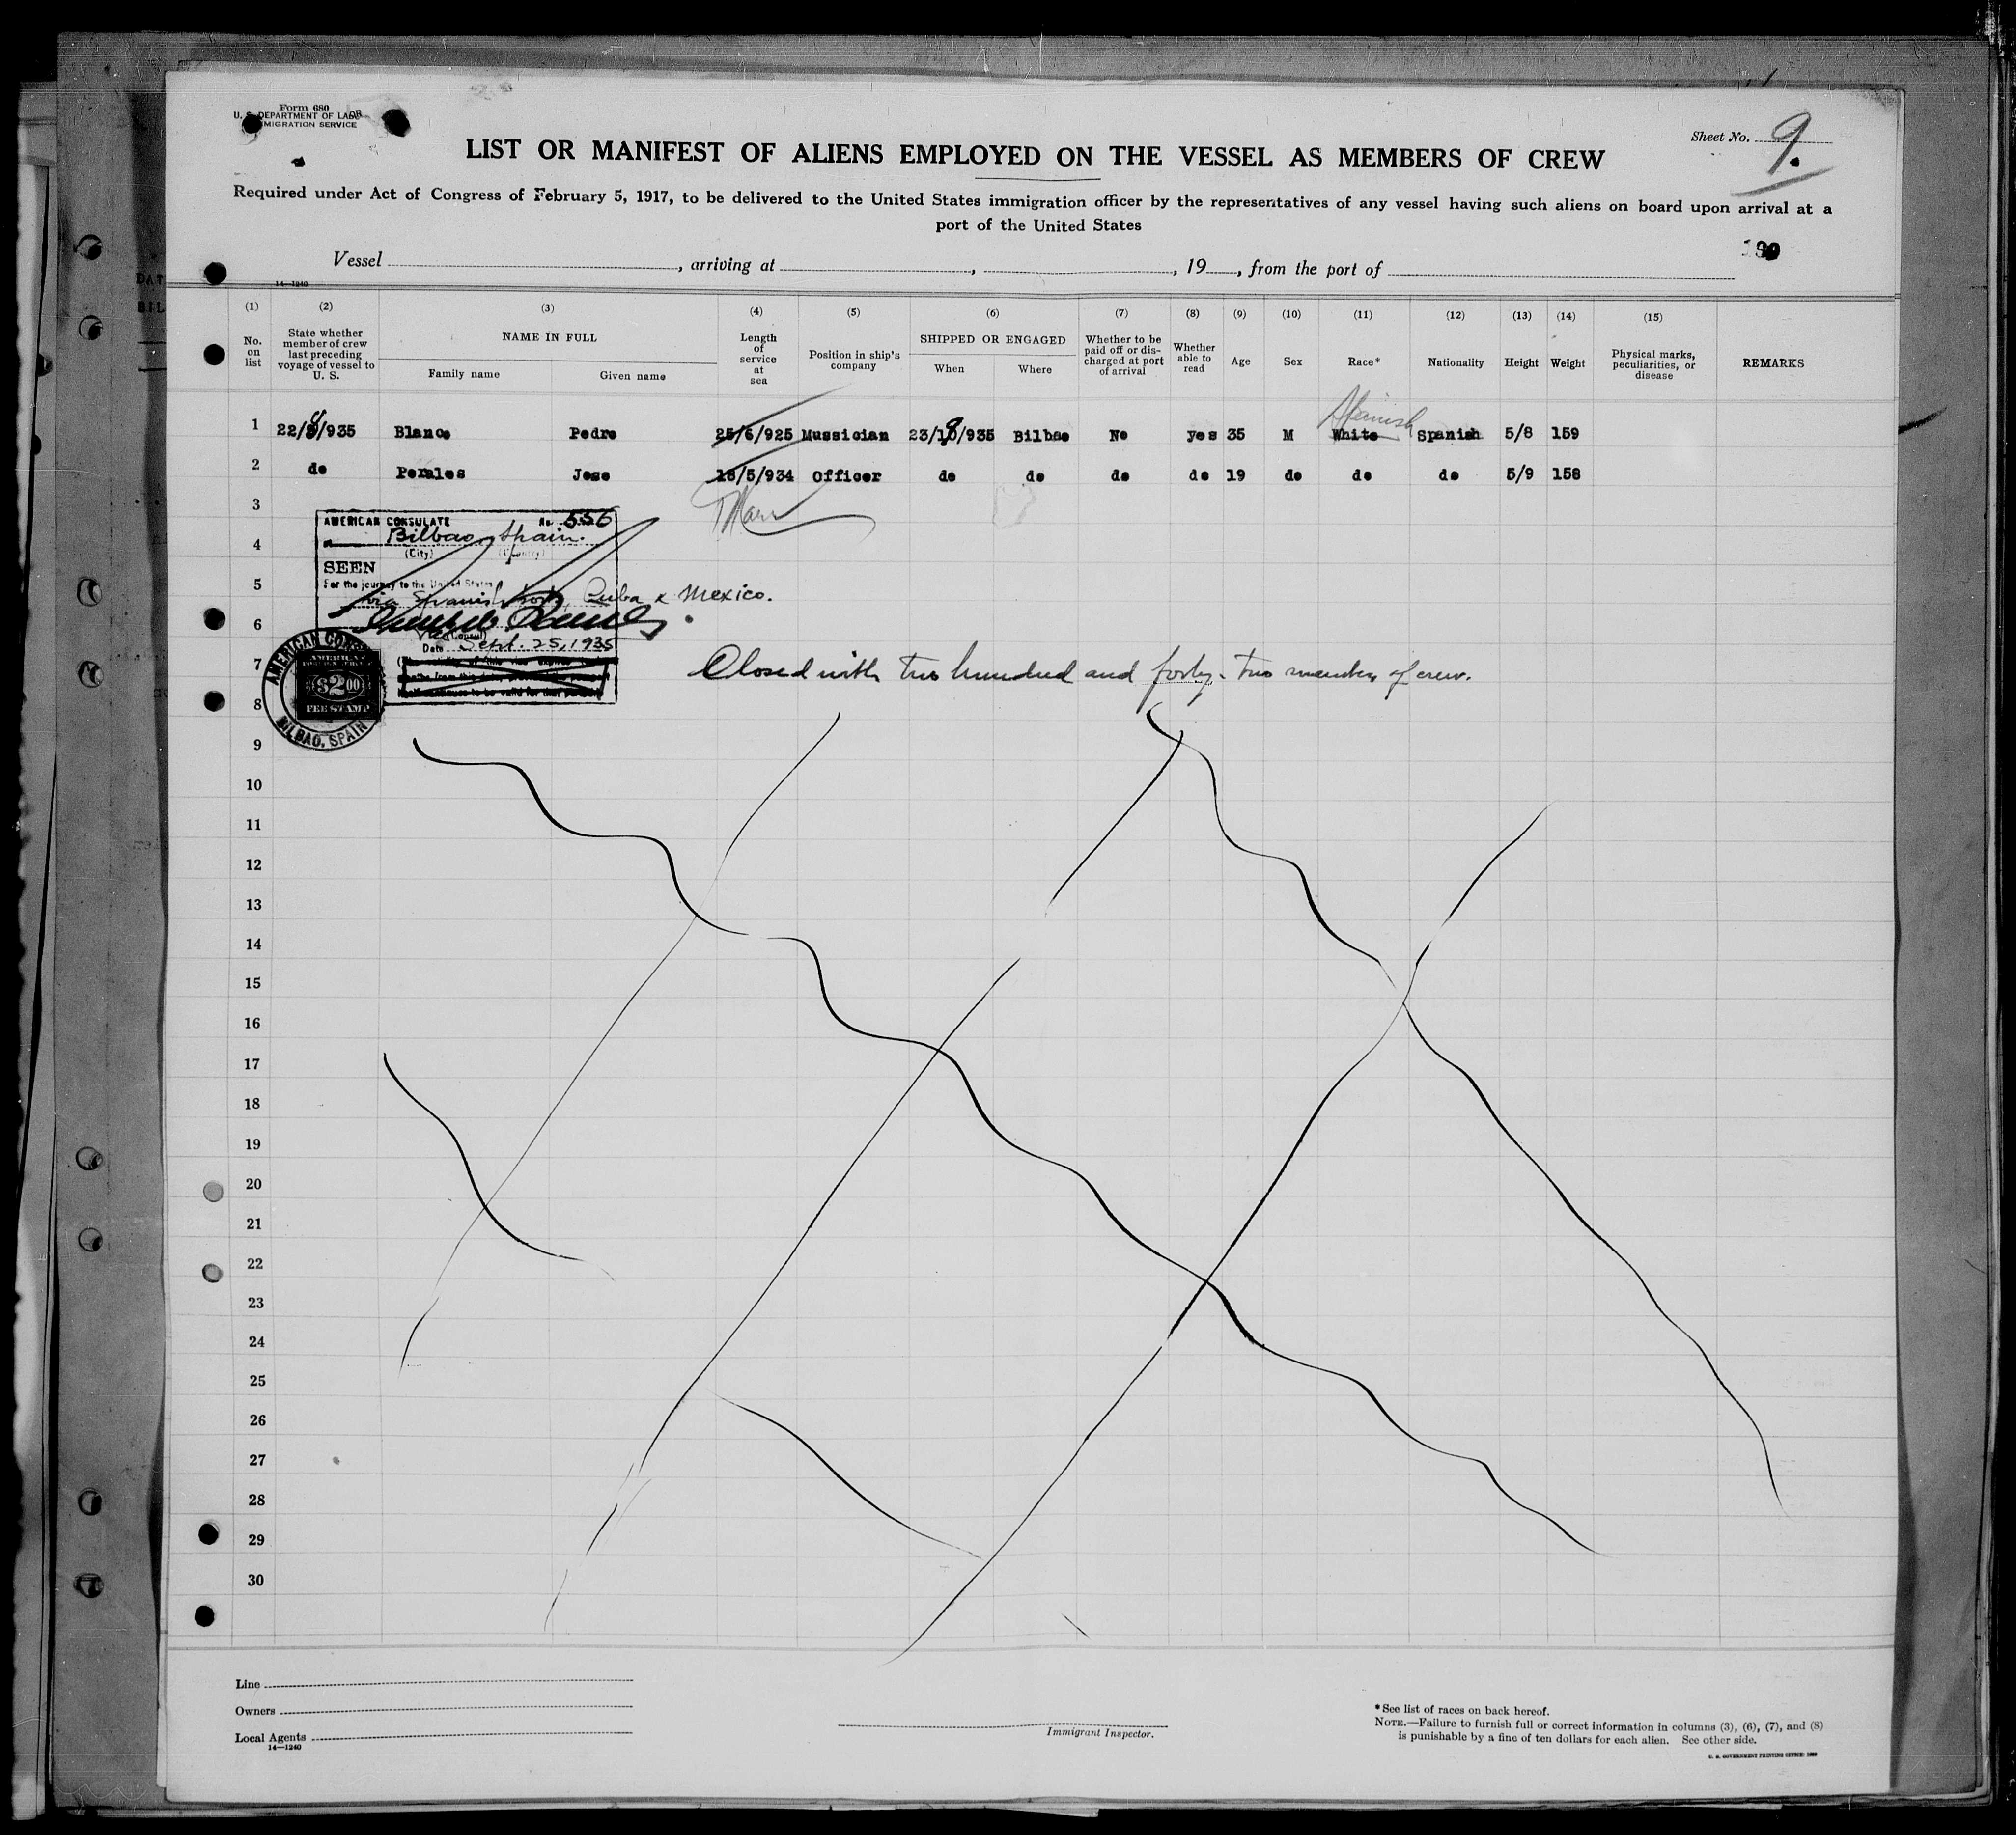 Form 680
U. S. DEPARTMENT OF LABOR
IMMIGRATION SERVICE
Sheet No. 9.
LIST OR MANIFEST OF ALIENS EMPLOYED ON THE VESSEL AS MEMBERS OF CREW
Required under Act of Congress of February 5, 1917, to be delivered to the United States immigration officer by the representatives of any vessel having such aliens on board upon arrival at a
port of the United States
Vessel , arriving at , , 19 , from the port of
14—1240
(1) (2) (3) (4) (5) (6) (7) (8) (9) (10) (11) (12) (13) (14) (15)
No. on list
State whether member of crew last preceding voyage of vessel to U. S.
NAME IN FULL
Family name
Given name
Length of service at sea
Position in ship's company
SHIPPED OR ENGAGED
When
Where
Whether to be paid off or discharged at port of arrival
Whether able to read
Age
Sex
Race*
Nationality
Height
Weight
Physical marks, peculiarities, or disease
REMARKS
Spanish
1 22/8/935 Blanco Pedro 25/6/925 Mussician 23/9/935 Bilbao No yes 35 M White Spanish 5/8 159
2 do Perales Jose 18/5/934 Officer do do do do 19 do do do 5/9 158
3
AMERICAN CONSULATE No. 556
4
Bilbao, Spain.
(City) (Country)
SEEN
5
For the journey to the United States
via Spanish Ports, Cuba & Mexico.
6
Vice Consul
Date Sept. 25, 1935
7
Closed with two hundred and forty-two members of crew.
AMERICAN
$2.00
FEE STAMP
BILBAO, SPAIN
8
9
10
11
12
13
14
15
16
17
18
19
20
21
22
23
24
25
26
27
28
29
30
Line
Owners
Local Agents
14—1240
Immigrant Inspector.
*See list of races on back hereof.
NOTE.—Failure to furnish full or correct information in columns (3), (6), (7), and (8)
is punishable by a fine of ten dollars for each alien. See other side.